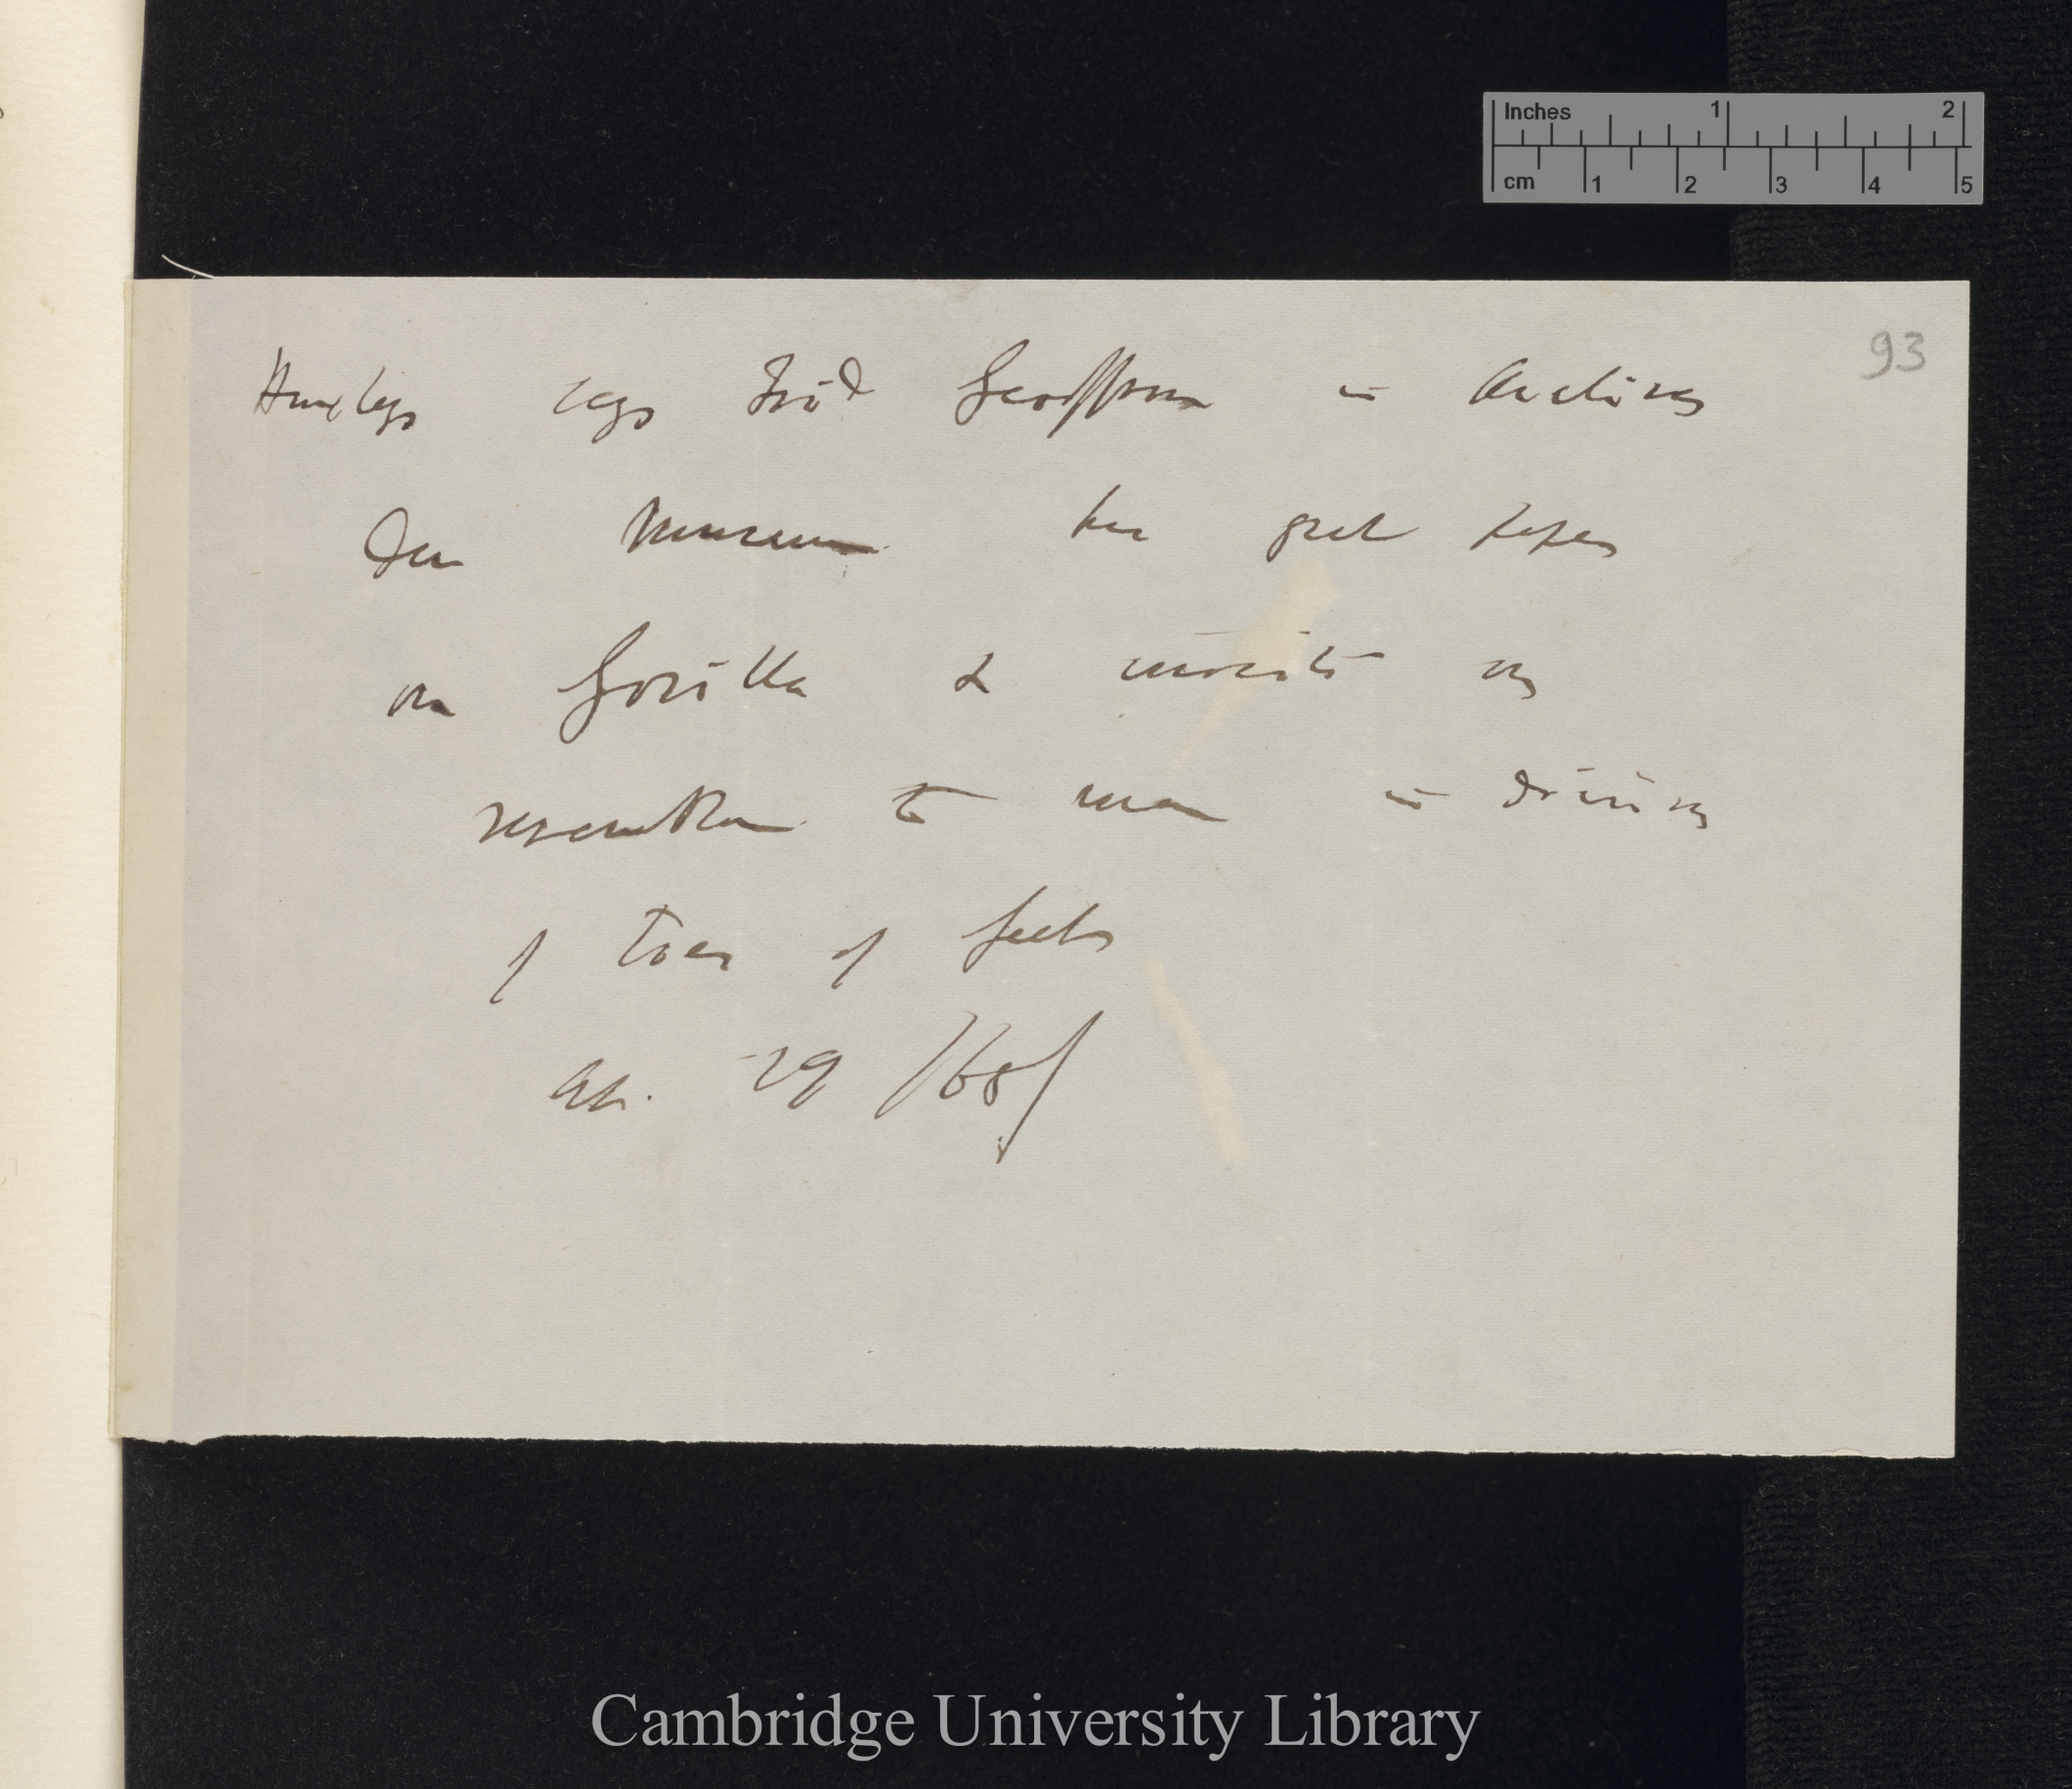 Inches 1 2
cm 1 2 3 4 5
93
Huxley says Isid Geoffroy in Archives
du Museum has great paper
on Gorilla & insists on
resemblance to man in division
of toes of feet
Ap. 29 /68/
Cambridge University Library